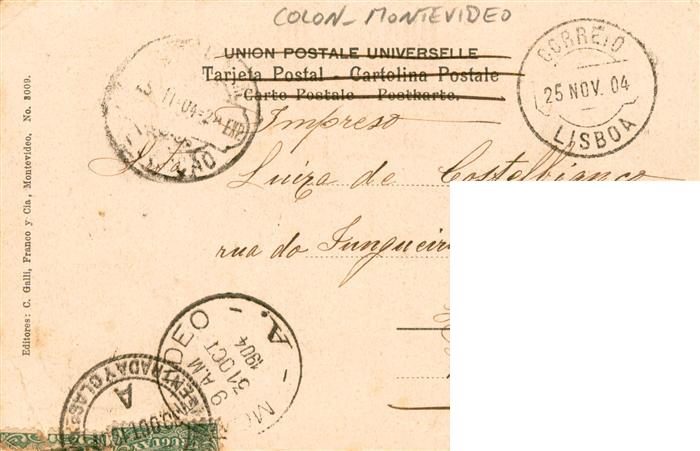 COLON - MONTEVIDEO
UNION POSTALE UNIVERSELLE
Tarjeta Postal - Cartolina Postale
Carte Postale - Postkarte.
CORREIO
25 NOV. 04
LISBOA
11-04-2
Impreso
Luiza de Castelbianco
rua do Jungueir
Editores: C. Galli, Franco y Cia, Montevideo, No. 3009.
MO DEO - A.
9 A.M
31 OCT
1904
ENTRADA Y CLAS
A